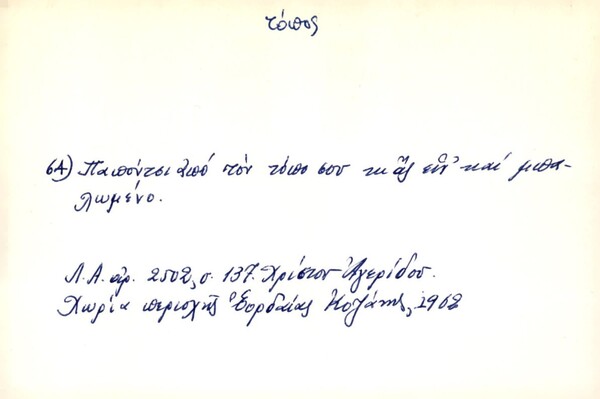 τόπος
64) Παπούτσι ἀπό τόν τόπο σου κι ἄς εἶν' καί μπα-
λωμένο.
Λ.Α. ἀρ. 2502, σ. 137. Χρίστου Ἀγερίδου.
Χωρία περιοχῆς Ἐορδαίας Κοζάνης, 1962